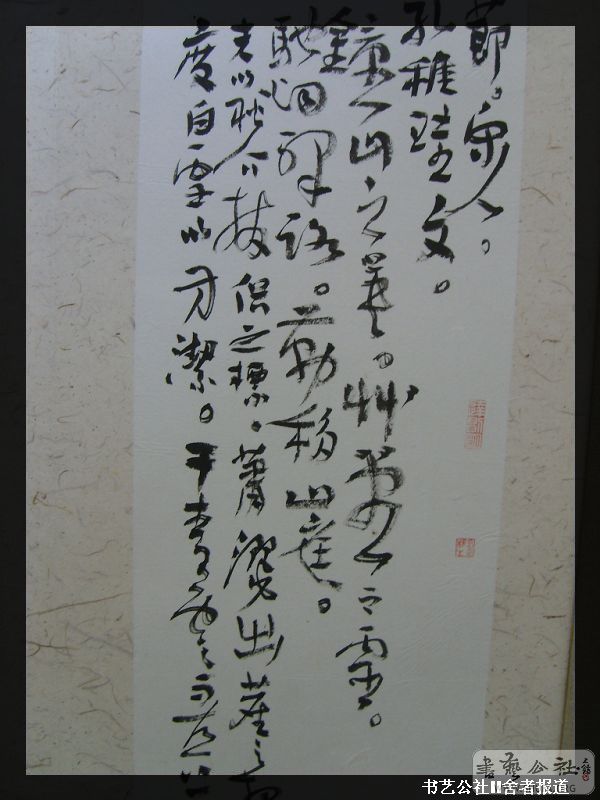 節。
孔稚珪文。
鐘山之英。艸堂之靈。
馳烟驛路。勒移山庭。
夫以耿介拔俗之標、蕭灑出塵之想
度白雪以方潔。干青雲而直上
書藝公社
书艺公社II舍者报道